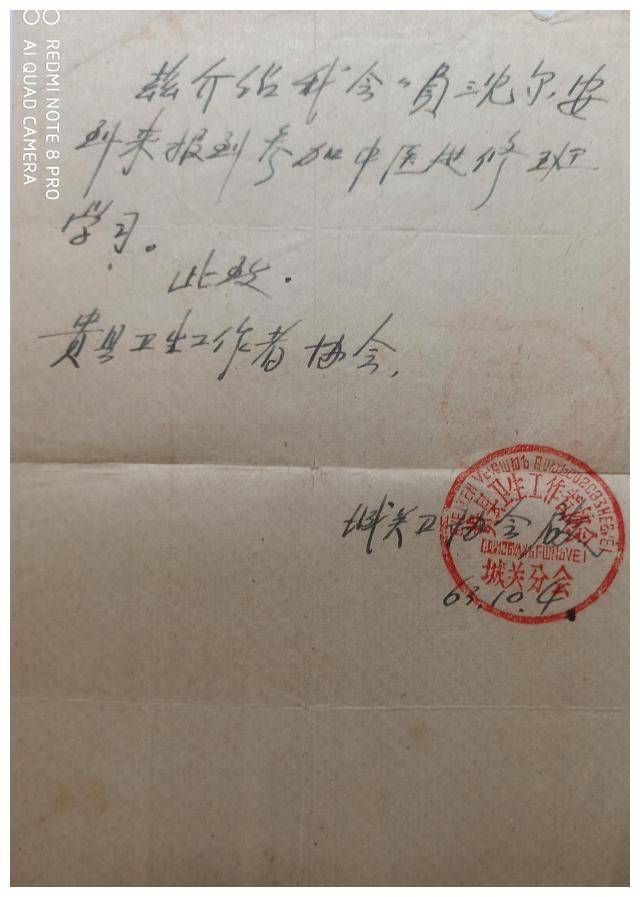 兹介绍我会会员沈尔安
到来报到参加中医进修班
学习。
此致.
贵县卫生工作者协会.
城关卫协会
63.10.4.
贵县卫生工作者协会
城关分会
REDMI NOTE 8 PRO
AI QUAD CAMERA